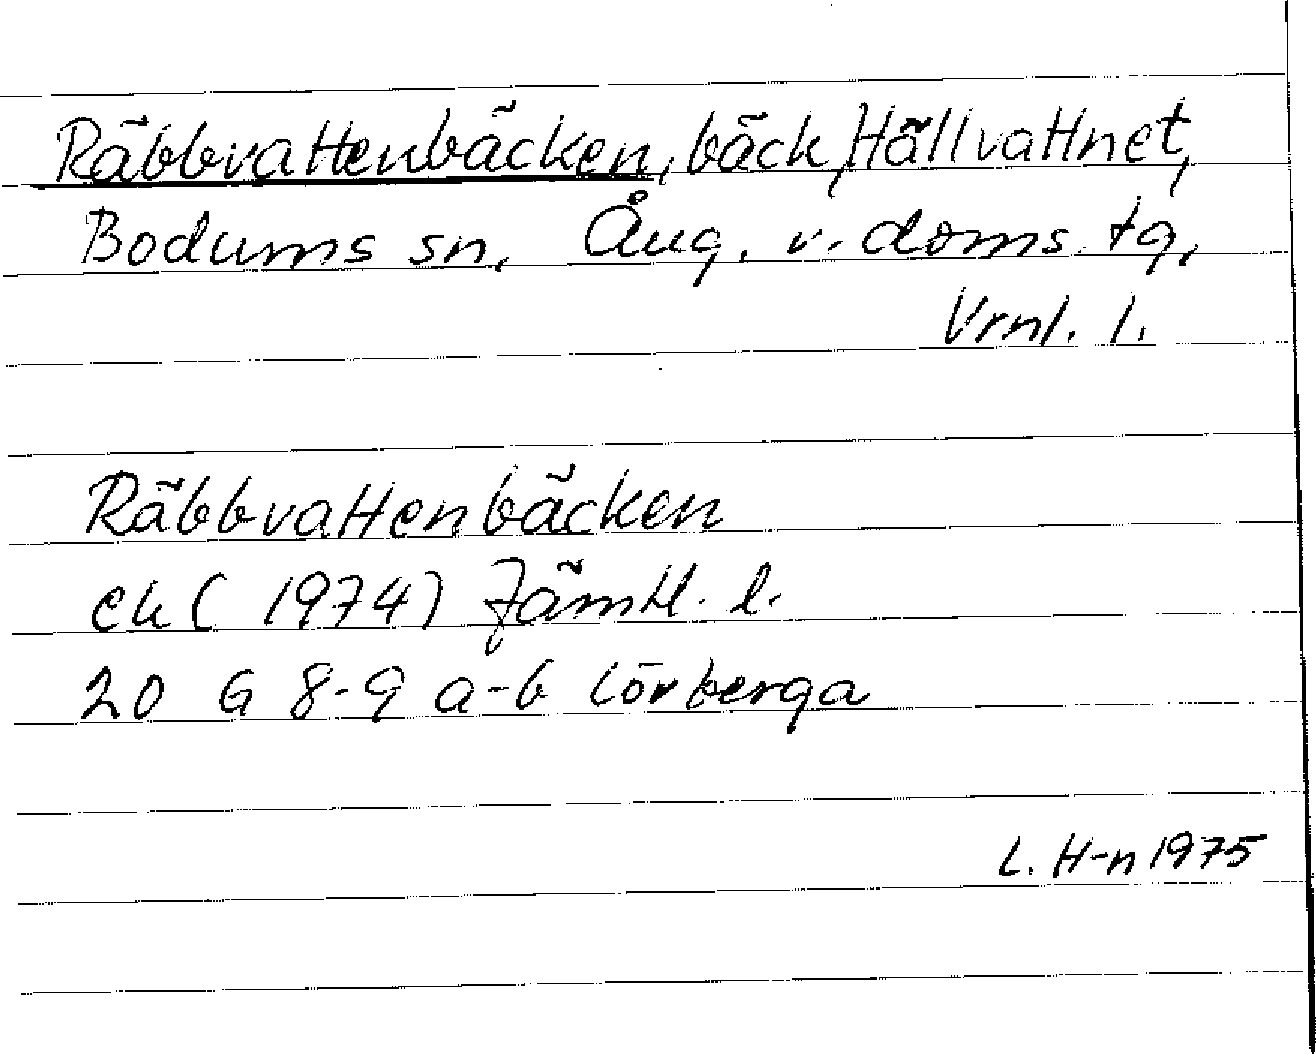 Räbbvattenbäcken, bäck, Hällvattnet,
Bodums sn, Ång. v. doms. tg,
Vrnl. l.
Räbbvattenbäcken
ek (1974) Jämtl. l.
20 G 8-9 a-b Lövberga
L. H-n 1975